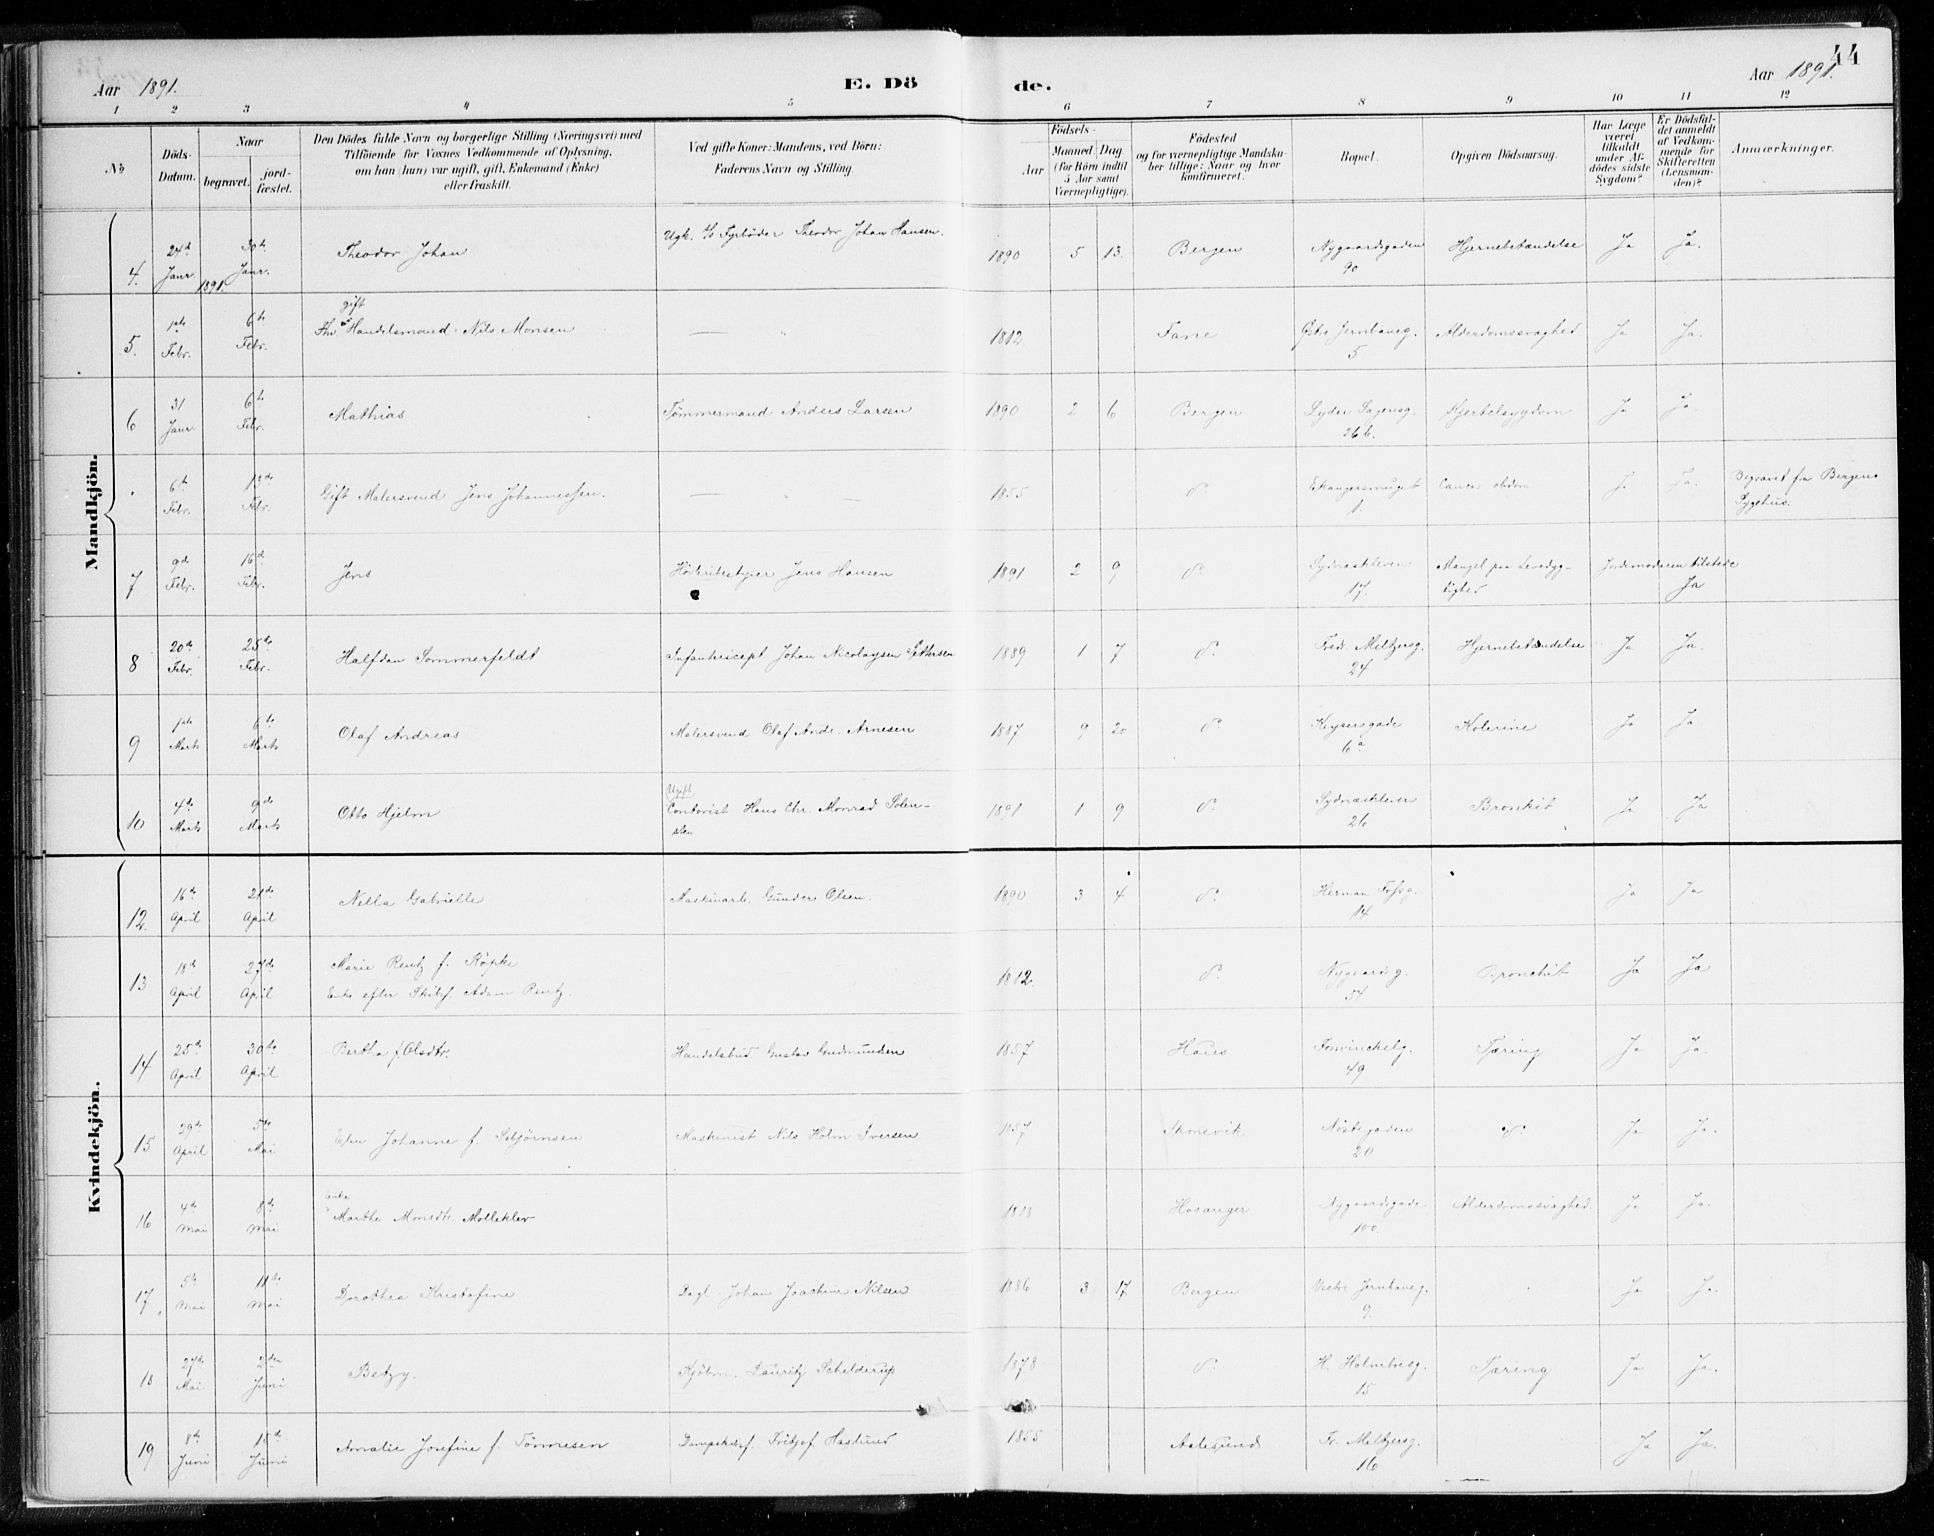 44
Aar 1891. E. Dö de. Aar 1891.
1 2 3 4 5 6 7 8 9 10 11 12
No
Döds-Datum.
Naar
begravet.
jord-fæstet.
Den Dödes fulde Navn og borgerlige Stilling (Næringsvei) med
Tilföiende for Voxnes Vedkommende af Oplysning,
om han (hun) var ugift, gift, Enkemand (Enke)
eller fraskilt.
Ved gifte Koner: Mandens, ved Börn:
Faderens Navn og Stilling.
Födsels-
Aar
Maaned. Dag
(for Börn indtil
5 Aar samt
Værnepligtige).
Födested
og for værnepligtige Mandska-
ber tillige: Naar og hvor
konfirmeret.
Bopæl.
Opgiven Dödsaarsag.
Har Læge
været
tilkaldt
under Af-
dödes sidste
Sygdom?
Er Dödsfal-
det anmeldt
af Vedkom-
mende for
Skifteretten
(Lensman-
den)?
Anmærkninger.
Mandkjön.
4. 24de Janr. 1891. 30te Janr. Theodor Johan Ugk. Fyrböder Theodor Johan Hansen. 1890 5 13. Bergen Nygaardsgaden 90 Hjernebetændelse Ja Ja.
5. 1ste Febr. 6te Febr. gift Handelsmand Nils Monsen — " 1812 Fane Östre Jernbaneg. 5 Alderdomssvaghed Ja Ja.
6 31 Janr. 6te Febr. Mathias Tømmermand Anders Larsen 1890 2 6 Bergen Lyder Sagensg. 26 b. Hjertesygdom Ja Ja
6te Febr. 13de Febr. Gift Malersvend Jens Johannessen. — " — 1855 do. 1. Cancer Ja Ja. Begravet fra Bergens Sygehus.
7 9de Febr. 16de Febr. Jens Jens Hansen 1891 2 9 do. Sydnæskleven 17. Mangel paa Levedyg-tighed Jordemoderen tilstede Ja
8 20de Febr. 25de Febr. Halfdan Sommerfeldt Infantericapt. Johan Nicolaysen Pettersen 1889 1 7 do. Fredr. Meltzersg. 24 Hjernebetændelse Ja Ja.
9 1ste Marts 6te Marts Olaf Andreas Malersvend Olaf Andr. Arnesen 1887 9 20 do. Keysersgade 6a Kolerine Ja Ja
10 4de Marts 9de Marts Otto Hjelm Ugift Contorist Hans Chr. Monrad 1891 1 9 do. Sydnæskleven 26 Bronkit Ja Ja
Kvindekjön.
12. 16de April 21de April Nella Gabrielle Maskinarb. Gunder Olsen. 1890 3 4 do. Herman Fossg. 14 Ja Ja
13 18de April 27de April Marie Rentz f. Röpke Enke efter Skibsf. Adam Rentz. 1812. do. Nygaardsg. 54 Bronchit Ja Ja
14 25de April 30te April Bertha f. Olsdtr. Handelsbud Gustav Gudmundsen 1857 Haus Forvinckelg. 49 Tæring Ja Ja.
15 29de April 5te Mai Elen Johanne f. Maskinist Nils Holm Iversen 1857 Skonevik Nöstegaden 20 do. Ja Ja.
16 4de Mai 8de Mai enke Marthe Monsdtr. Mølleklev Hosanger Nygaardsgade 100. Alderdomssvaghed. Ja Ja.
17 5te Mai 11te Mai Dorothea Kristofine Dagl. Johan Joachim Nilsen 1886 3 17 Bergen Vestre Jernbaneg. 9. Ja Ja.
18 27de Mai 2den Juni Betzy. Kjöbm. Lauritz Schelderup 1878 do. H. Holmboesg. 15 Tæring Ja Ja.
19 8de Juni 15de Juni Amalie Josefine f. Tönnesen Dampskibsf. Fritjof Haslund 1855 Aalesund Fr. Meltzersg. 16 Ja Ja.